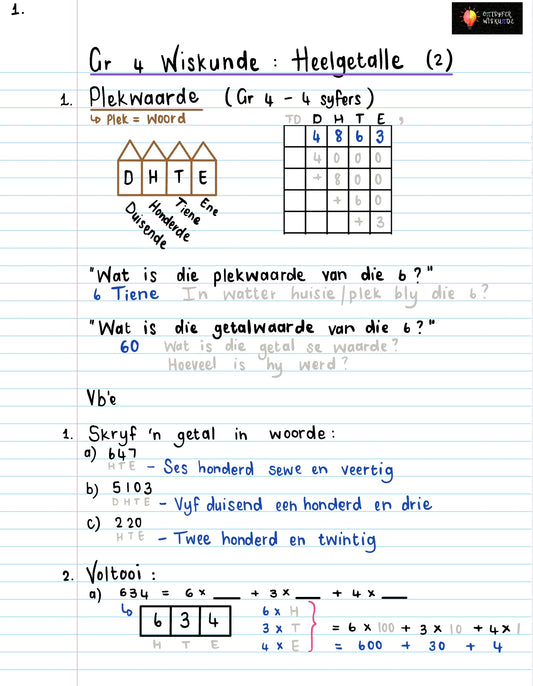 1.
ONTRYFER
WISKUNDE
Gr 4 Wiskunde : Heelgetalle (2)
1. Plekwaarde (Gr 4 - 4 syfers)
↳ Plek = Woord
TD D H T E ,
4 8 6 3
4 0 0 0
+ 8 0 0
+ 6 0
+ 3
D H T E
Duisende Honderde Tiene Ene
"Wat is die plekwaarde van die 6?"
6 Tiene In watter huisie/plek bly die 6?
"Wat is die getalwaarde van die 6?"
60 Wat is die getal se waarde?
Hoeveel is hy werd?
Vb'e
1. Skryf 'n getal in woorde:
a) 647
HTE - Ses honderd sewe en veertig
b) 5103
DHTE - Vyf duisend een honderd en drie
c) 220
HTE - Twee honderd en twintig
2. Voltooi :
a) 634 = 6 × ___ + 3 × ___ + 4 × ___
↳ 6 3 4
H T E
6 × H
3 × T
4 × E
= 6 × 100 + 3 × 10 + 4 × 1
= 600 + 30 + 4